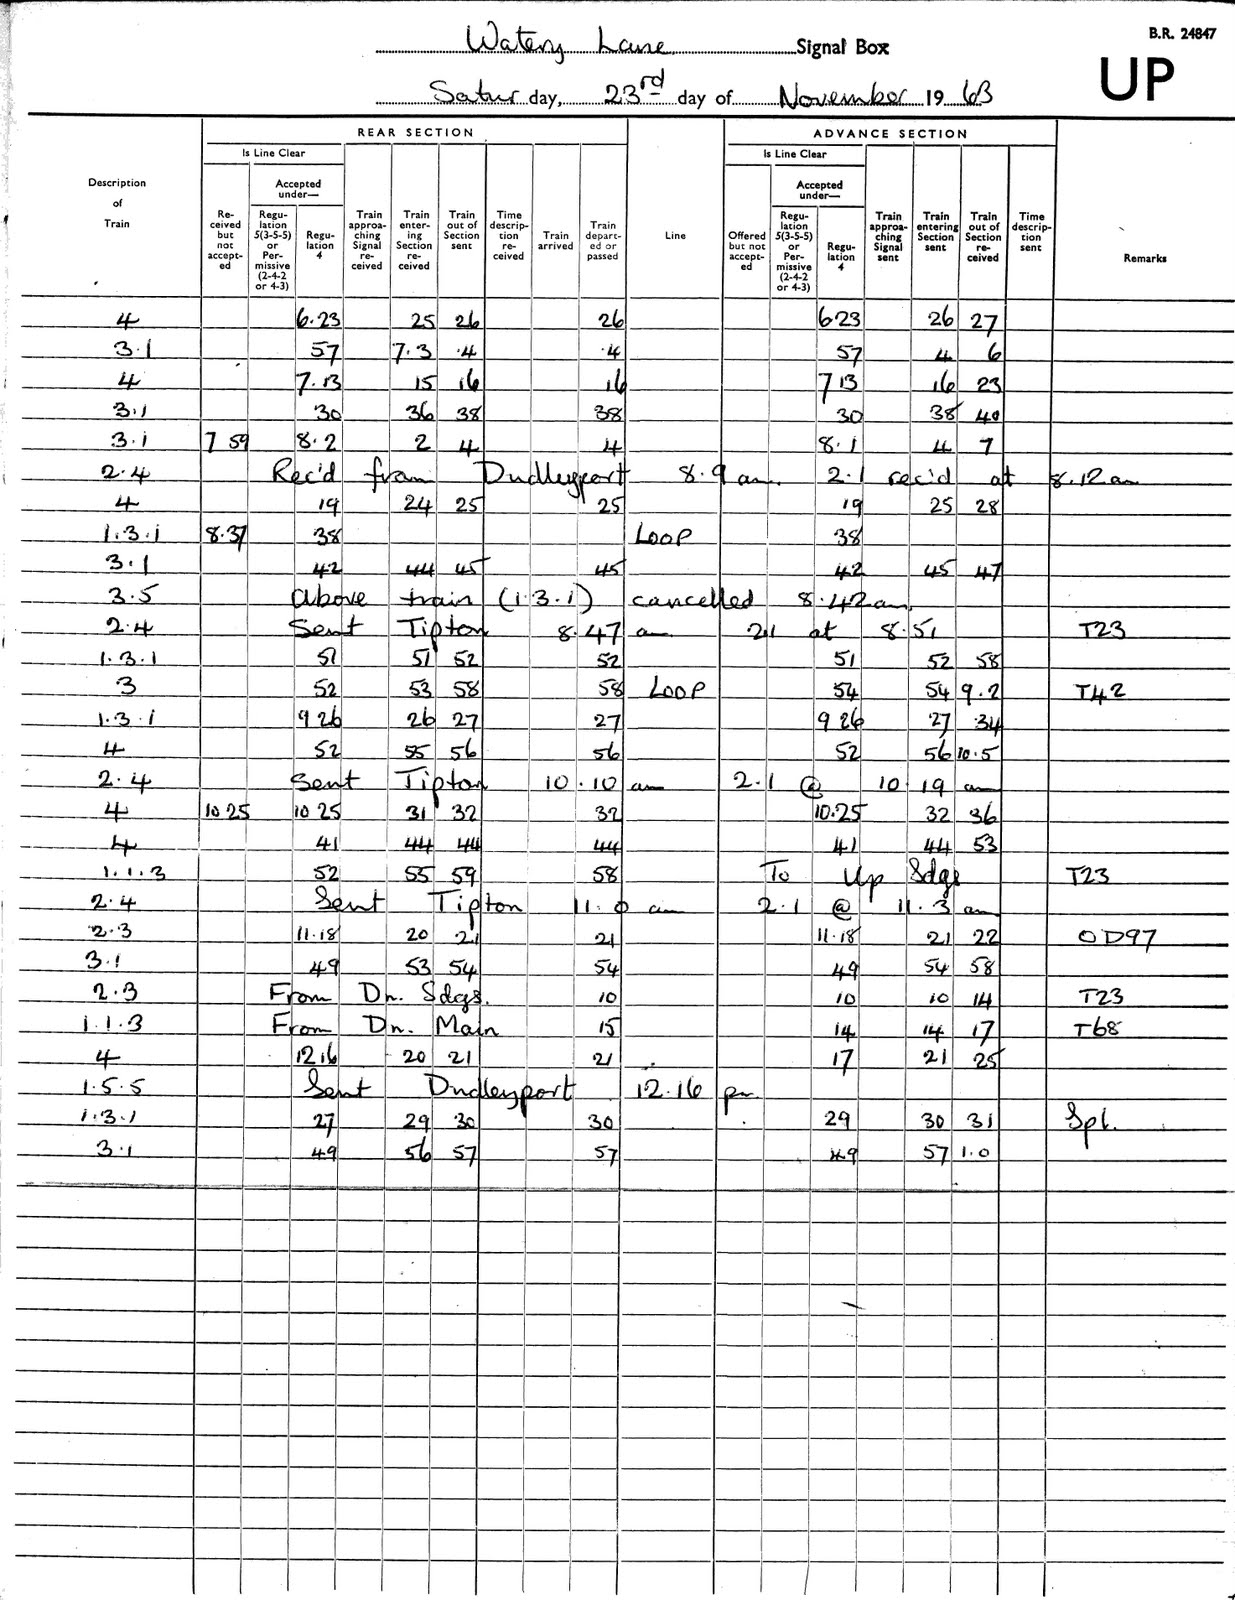 Watery Lane Signal Box
B.R. 24847
UP
Satur day, 23rd day of November 19 63
REAR SECTION ADVANCE SECTION
Is Line Clear Is Line Clear
Description of Train
Accepted under— Accepted under—
Re-ceived but not accept-ed
Regu-lation 5(3-5-5) or Per-missive (2-4-2 or 4-3)
Regu-lation 4
Train approa-ching Signal re-ceived
Train enter-ing Section re-ceived
Train out of Section sent
Time descrip-tion re-ceived
Train arrived
Train depart-ed or passed
Line
Offered but not accept-ed
Regu-lation 5(3-5-5) or Per-missive (2-4-2 or 4-3)
Regu-lation 4
Train approa-ching Signal sent
Train entering Section sent
Train out of Section re-ceived
Time descrip-tion sent
Remarks
4 6.23 25 26 26 6 23 26 27
3.1 57 7.3 .4 .4 57 4 6
4 7.13 15 16 16 7 13 16 23
3.1 30 36 38 38 30 38 40
3.1 7 59 8.2 2 4 4 8.1 4 7
2.4 Rec'd from Dudleyport 8.9 am. 2.1 rec'd at 8.12 am
4 19 24 25 25 19 25 28
1.3.1 8.37 38 LOOP 38
3.1 42 44 45 45 42 45 47
3.5 Above train (1.3.1) cancelled 8.42 am.
2.4 Sent Tipton 8.47 am 2.1 at 8.51 T23
1.3.1 51 51 52 52 51 52 58
3 52 53 58 58 LOOP 54 54 9.2 T42
1.3.1 9 26 26 27 27 9 26 27 34
4 52 55 56 56 52 56 10.5
2.4 Sent Tipton 10.10 am 2.1 @ 10 19 am
4 10 25 10 25 31 32 32 10.25 32 36
4 41 44 44 44 41 44 53
1.1.3 52 55 59 58 To Up Sdgs T23
2.4 Sent Tipton 11.0 am 2.1 @ 11.3 am
2.3 11.18 20 21 21 11.18 21 22 OD97
3.1 49 53 54 54 49 54 58
2.3 From Dn. Sdgs. 10 10 10 14 T23
1.1.3 From Dn. Main 15 14 14 17 T68
4 12 16 20 21 21 17 21 25
1.5.5 Sent Dudleyport 12.16 pm.
1.3.1 27 29 30 30 29 30 31 Spl.
3.1 49 56 57 57 49 57 1.0